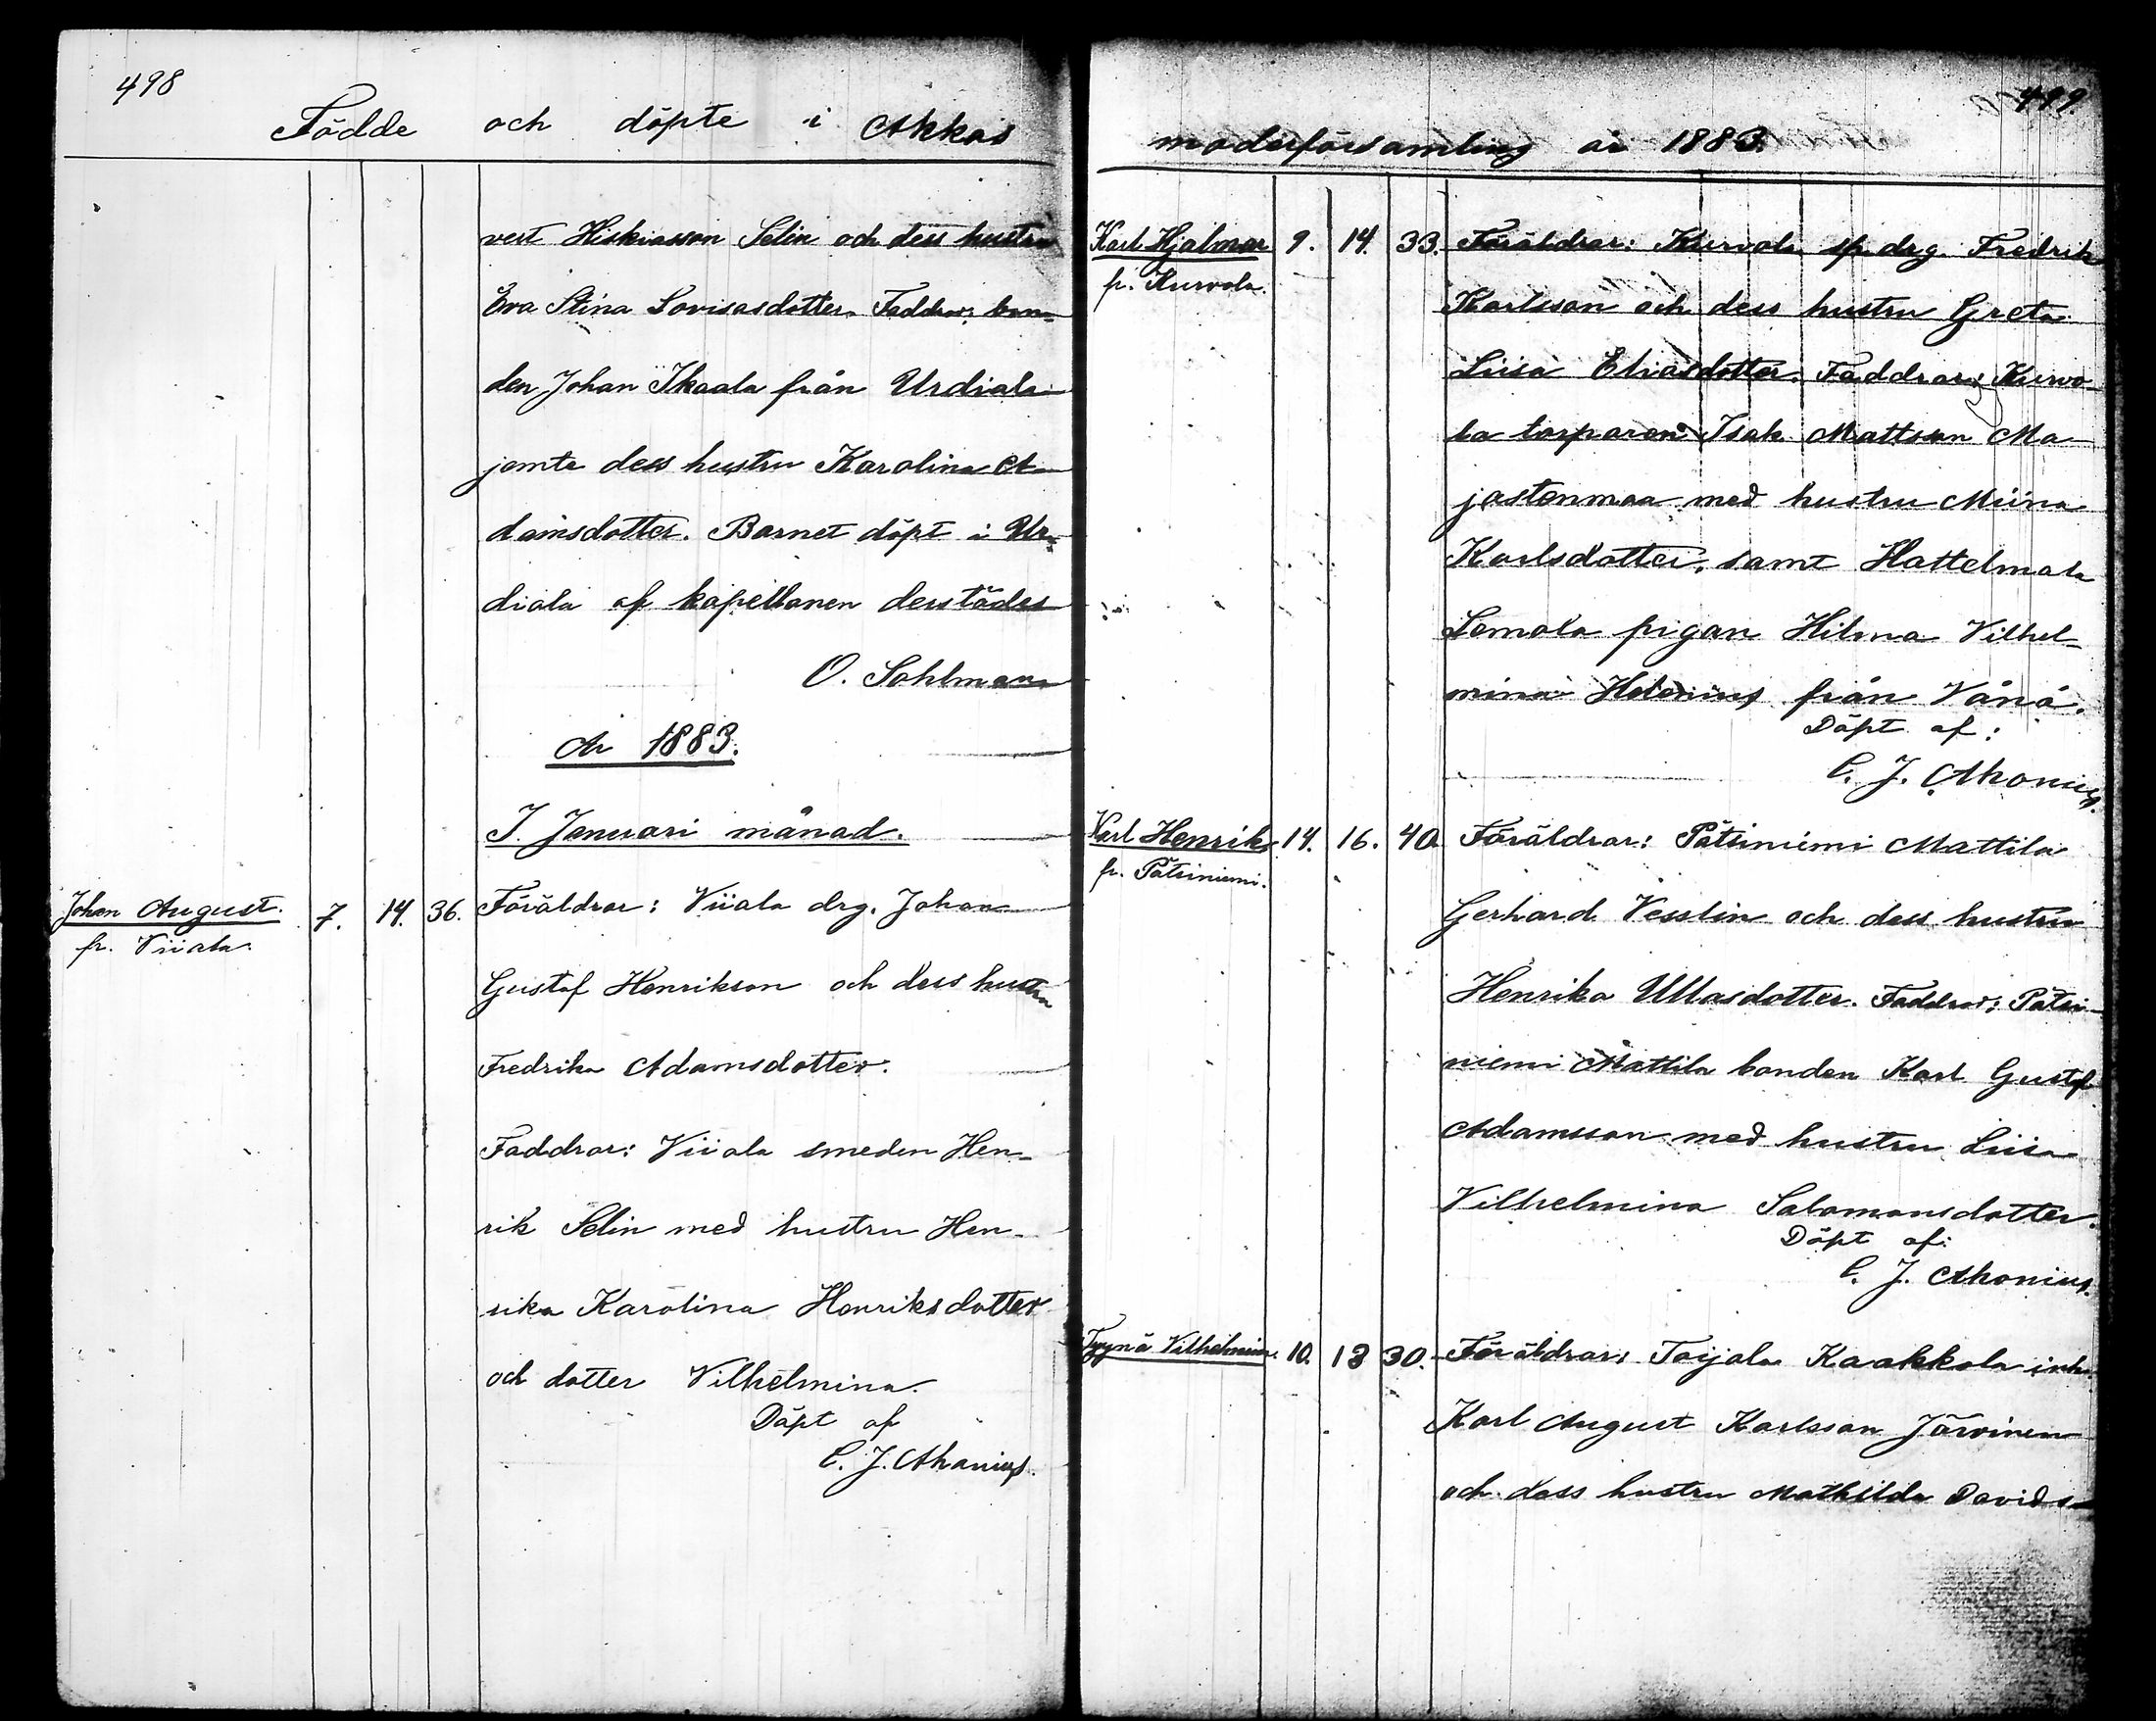 498
Födde och döpte i Akkas
vert Hiskiasson Selin och dess hustru
Eva Stina Lovisasdotter. Faddrar: bon-
den Johan Ikaala från Urdiala
jemte dess hustru Karolina A-
damsdotter. Barnet döpt i Ur-
diala af kapellanen derstädes
O. Sohlman
År 1883.
I Januari månad.
Johan August. 7. 14. 36. Föräldrar: Viiala drg. Johan
fr. Viiala.
Gustaf Henrikson och dess hustru
Fredrika Adamsdotter.
Faddrar: Viiala smeden Hen-
rik Selin med hustru Hen-
rika Karolina Henriksdotter
och dotter Vilhelmina.
Döpt af
C. J. Ahonius.
499.
moderförsamling år 1883.
Karl Hjalmar 9. 14. 33. Föräldrar: Kurvola sp. drg. Fredrik
fr. Kurvola.
Karlsson och dess hustru Greta
Liisa Eliasdotter. Faddrar: Kurvo-
la torparen Isak Mattsson Ma-
jastenmaa med hustru Miina
Karlsdotter, samt Hattelmala
Lemola pigan Hilma Vilhel-
mina Helenius från Vånå.
Döpt af:
C. J. Ahonius.
Karl Henrik 14. 16. 40. Föräldrar: Pätsiniemi Mattila
fr. Pätsiniemi.
Gerhard Vesslin och dess hustru
Henrika Ullasdotter. Faddrar: Pätsi-
niemi Mattila bonden Karl Gustaf
Adamsson med hustru Liisa
Vilhelmina Salomonsdotter.
Döpt af:
C. J. Ahonius.
Tyynä Vilhelmina. 10. 13 30. Föräldrar: Toijala Kaakkola inh.
Karl August Karlsson Järvinen
och dess hustru Mathilda Davids-